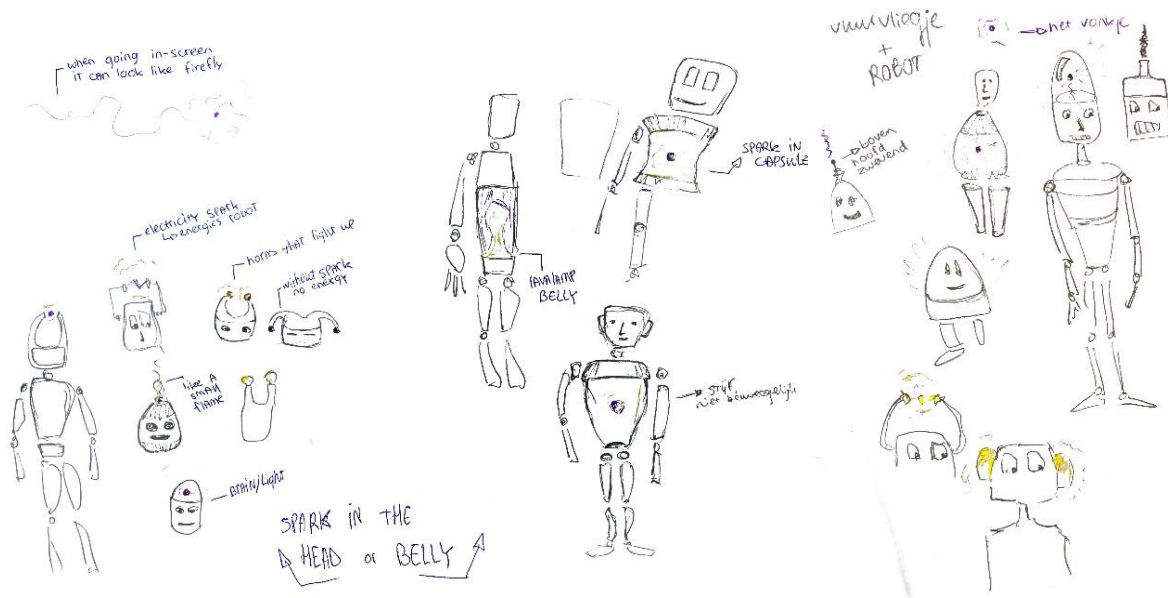 when going in-screen
it can look like firefly
electricity SPARK
↳ energies robot
horns that light up
without SPARK
no energy
like A
small
flame
BRAIN/Light
SPARK IN THE
HEAD or BELLY
LAVALAMP
BELLY
SPARK IN
CAPSULE
stijf
niet beweegelijk
vuurvliegje
+
ROBOT
het vonkje
boven
hoofd
zwevend